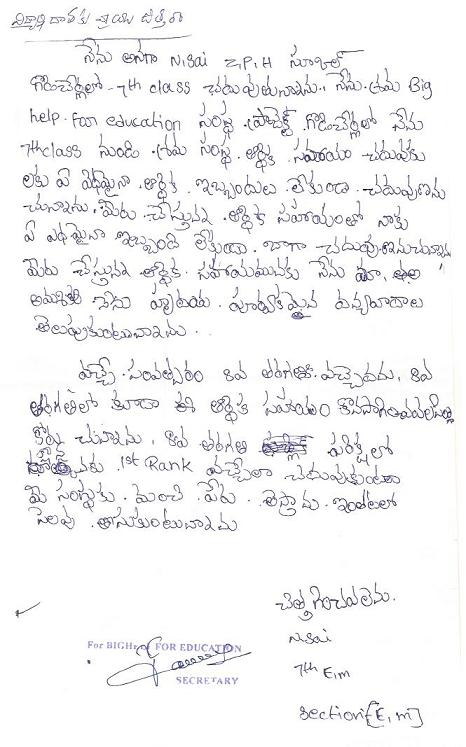 విద్యార్థి దాతకు వ్రాయు ఉత్తరం
నేను అనగా N.sai Z.P.H స్కూల్
గొడిచెర్లలో - 7th class చదువుతున్నాను. నేను Big
help. for education సంస్థ. ప్రాజెక్ట్ గొడిచెర్లలో నేను
7th class నుండి. సంస్థ. ఆర్థిక. సహాయం చదువుకు
ఏ విధమైనా. ఆర్థిక. ఇబ్బందులు లేకుండా. చదువుకును
చున్నాను. మీరు. చేస్తున్న. ఆర్థిక సహాయంతో నాకు
ఏ విధమైనా ఇబ్బంది లేకుండా. బాగా చదువుకొనుచున్నాను
మీరు చేస్తున్న ఆర్థిక. సహాయమునకు నేను మా,
నేను హృదయ. పూర్వకమైన ధన్యవాదాలు
తెలుపుకుంటున్నాను..
వచ్చే. సంవత్సరం 8వ తరగతికి. వచ్చెదను, 8వ
తరగతిలో కూడా ఈ ఆర్థిక సహాయం
కోరు చున్నాను, 8వ తరగతి పరీక్షలో
1st Rank వచ్చేలా చదువుకుంటూ
మీ సంస్థకు. మంచి పేరు. తెస్తాను. ఇంతటిలో
సెలవు తీసుకుంటున్నాను
చిత్తగించవలెను.
N.sai
7th E.m
section [E, m]
For BIGHELP FOR EDUCATION
SECRETARY